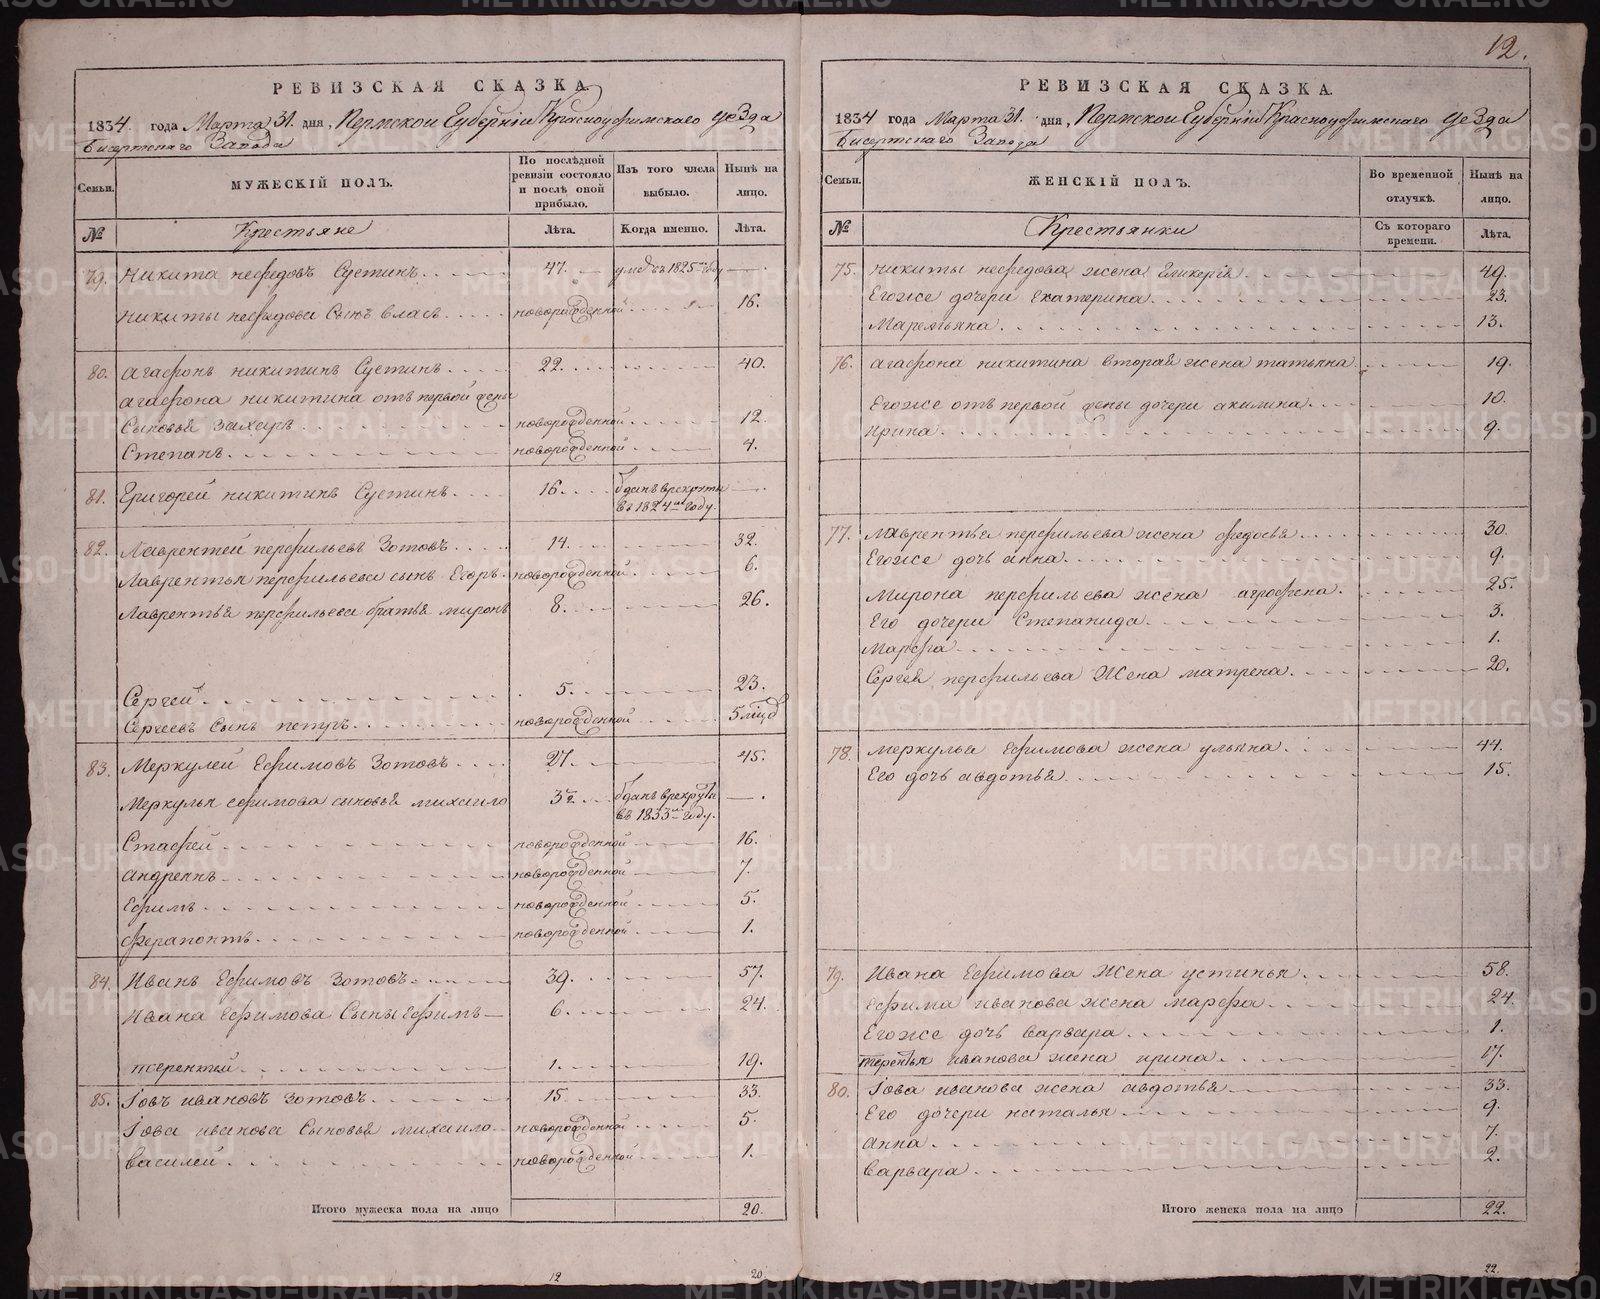 12.
РЕВИЗСКАЯ СКАЗКА
1834. года Марта 31. дня, Пермской Губерніи Красноуфимскаго уезда
Бисертскаго Завода
Семьи.
МУЖЕСКІЙ ПОЛЪ.
По послѣдней ревизіи состояло и послѣ оной прибыло.
Изъ того числа выбыло.
Нынѣ на лицо.
№
Крестьяне
Лѣта.
Когда именно.
Лѣта.
79. Никита нефедовъ Сустинъ 47. умеръ 1825 году
Никиты нефедова Сынъ власъ новорожденной 16.
80. Агафонъ никитинъ Сустинъ 22. 40.
Агафона никитина отъ первой жены
Сыновья Захаръ новорожденной 12.
Степанъ новорожденной 4.
81. Григорей никитинъ Сустинъ 16. Отданъ врекруты
въ 1824м году.
82. Лаврентей перфильевъ Зотовъ 14. 32.
Лаврентья перфильева сынъ Егоръ новорожденной 6.
Лаврентья перфильева братья миронъ 8. 26.
Сергей 5. 23.
Сергеевъ Сынъ петръ новорожденной 5
83. Меркулей Ефимовъ Зотовъ 27. 45.
Меркулья ефимова сыновья михайло 3½ Отданъ врекруты
въ 1833м году.
Стафей новорожденной 16.
Андреянъ новорожденной 7.
Ефимъ новорожденной 5.
Ферапонтъ новорожденной 1.
84. Иванъ Ефимовъ Зотовъ 39. 57.
Ивана Ефимова Сыны Ефимъ 6. 24.
терентей 1. 19.
85. Іовъ ивановъ Зотовъ 15. 33.
Іова иванова Сыновья михайло новорожденной 5.
Василей новорожденной 1.
Итого мужеска пола на лицо 20.
12 20.
РЕВИЗСКАЯ СКАЗКА.
1834 года Марта 31. дня, Пермской Губерніи Красноуфимскаго уезда
Бисертскаго Завода
Семьи.
ЖЕНСКІЙ ПОЛЪ.
Во временной отлучкѣ.
Нынѣ на лицо.
№
Крестьянки
Съ котораго времени.
Лѣта.
75. Никиты нефедова жена Гликерія 49.
Егоже дочери Екатерина 23.
Маремьяна 13.
76. Агафона никитина вторая жена татьяна 19.
Егоже отъ первой жены дочери акилина 10.
Ирина 9.
77. Лаврентья перфильева жена федосья 30.
Егоже дочь анна 9.
Мирона перфильева жена аграфена 25.
Его дочери Степанида 3.
Марфа 1.
Сергея перфильева Жена матрена 20.
78. Меркулья Ефимова жена ульяна 44.
Его дочь авдотья 15.
79. Ивана Ефимова Жена устинья 58.
Ефима иванова жена марфа 24.
Егоже дочь варвара 1.
терентья иванова жена ирина 17.
80. Іова иванова жена авдотья 33.
Его дочери наталья 9.
Анна 7.
Варвара 2.
Итого женска пола на лицо 22.
22.
METRIKI.GASO-URAL.RU